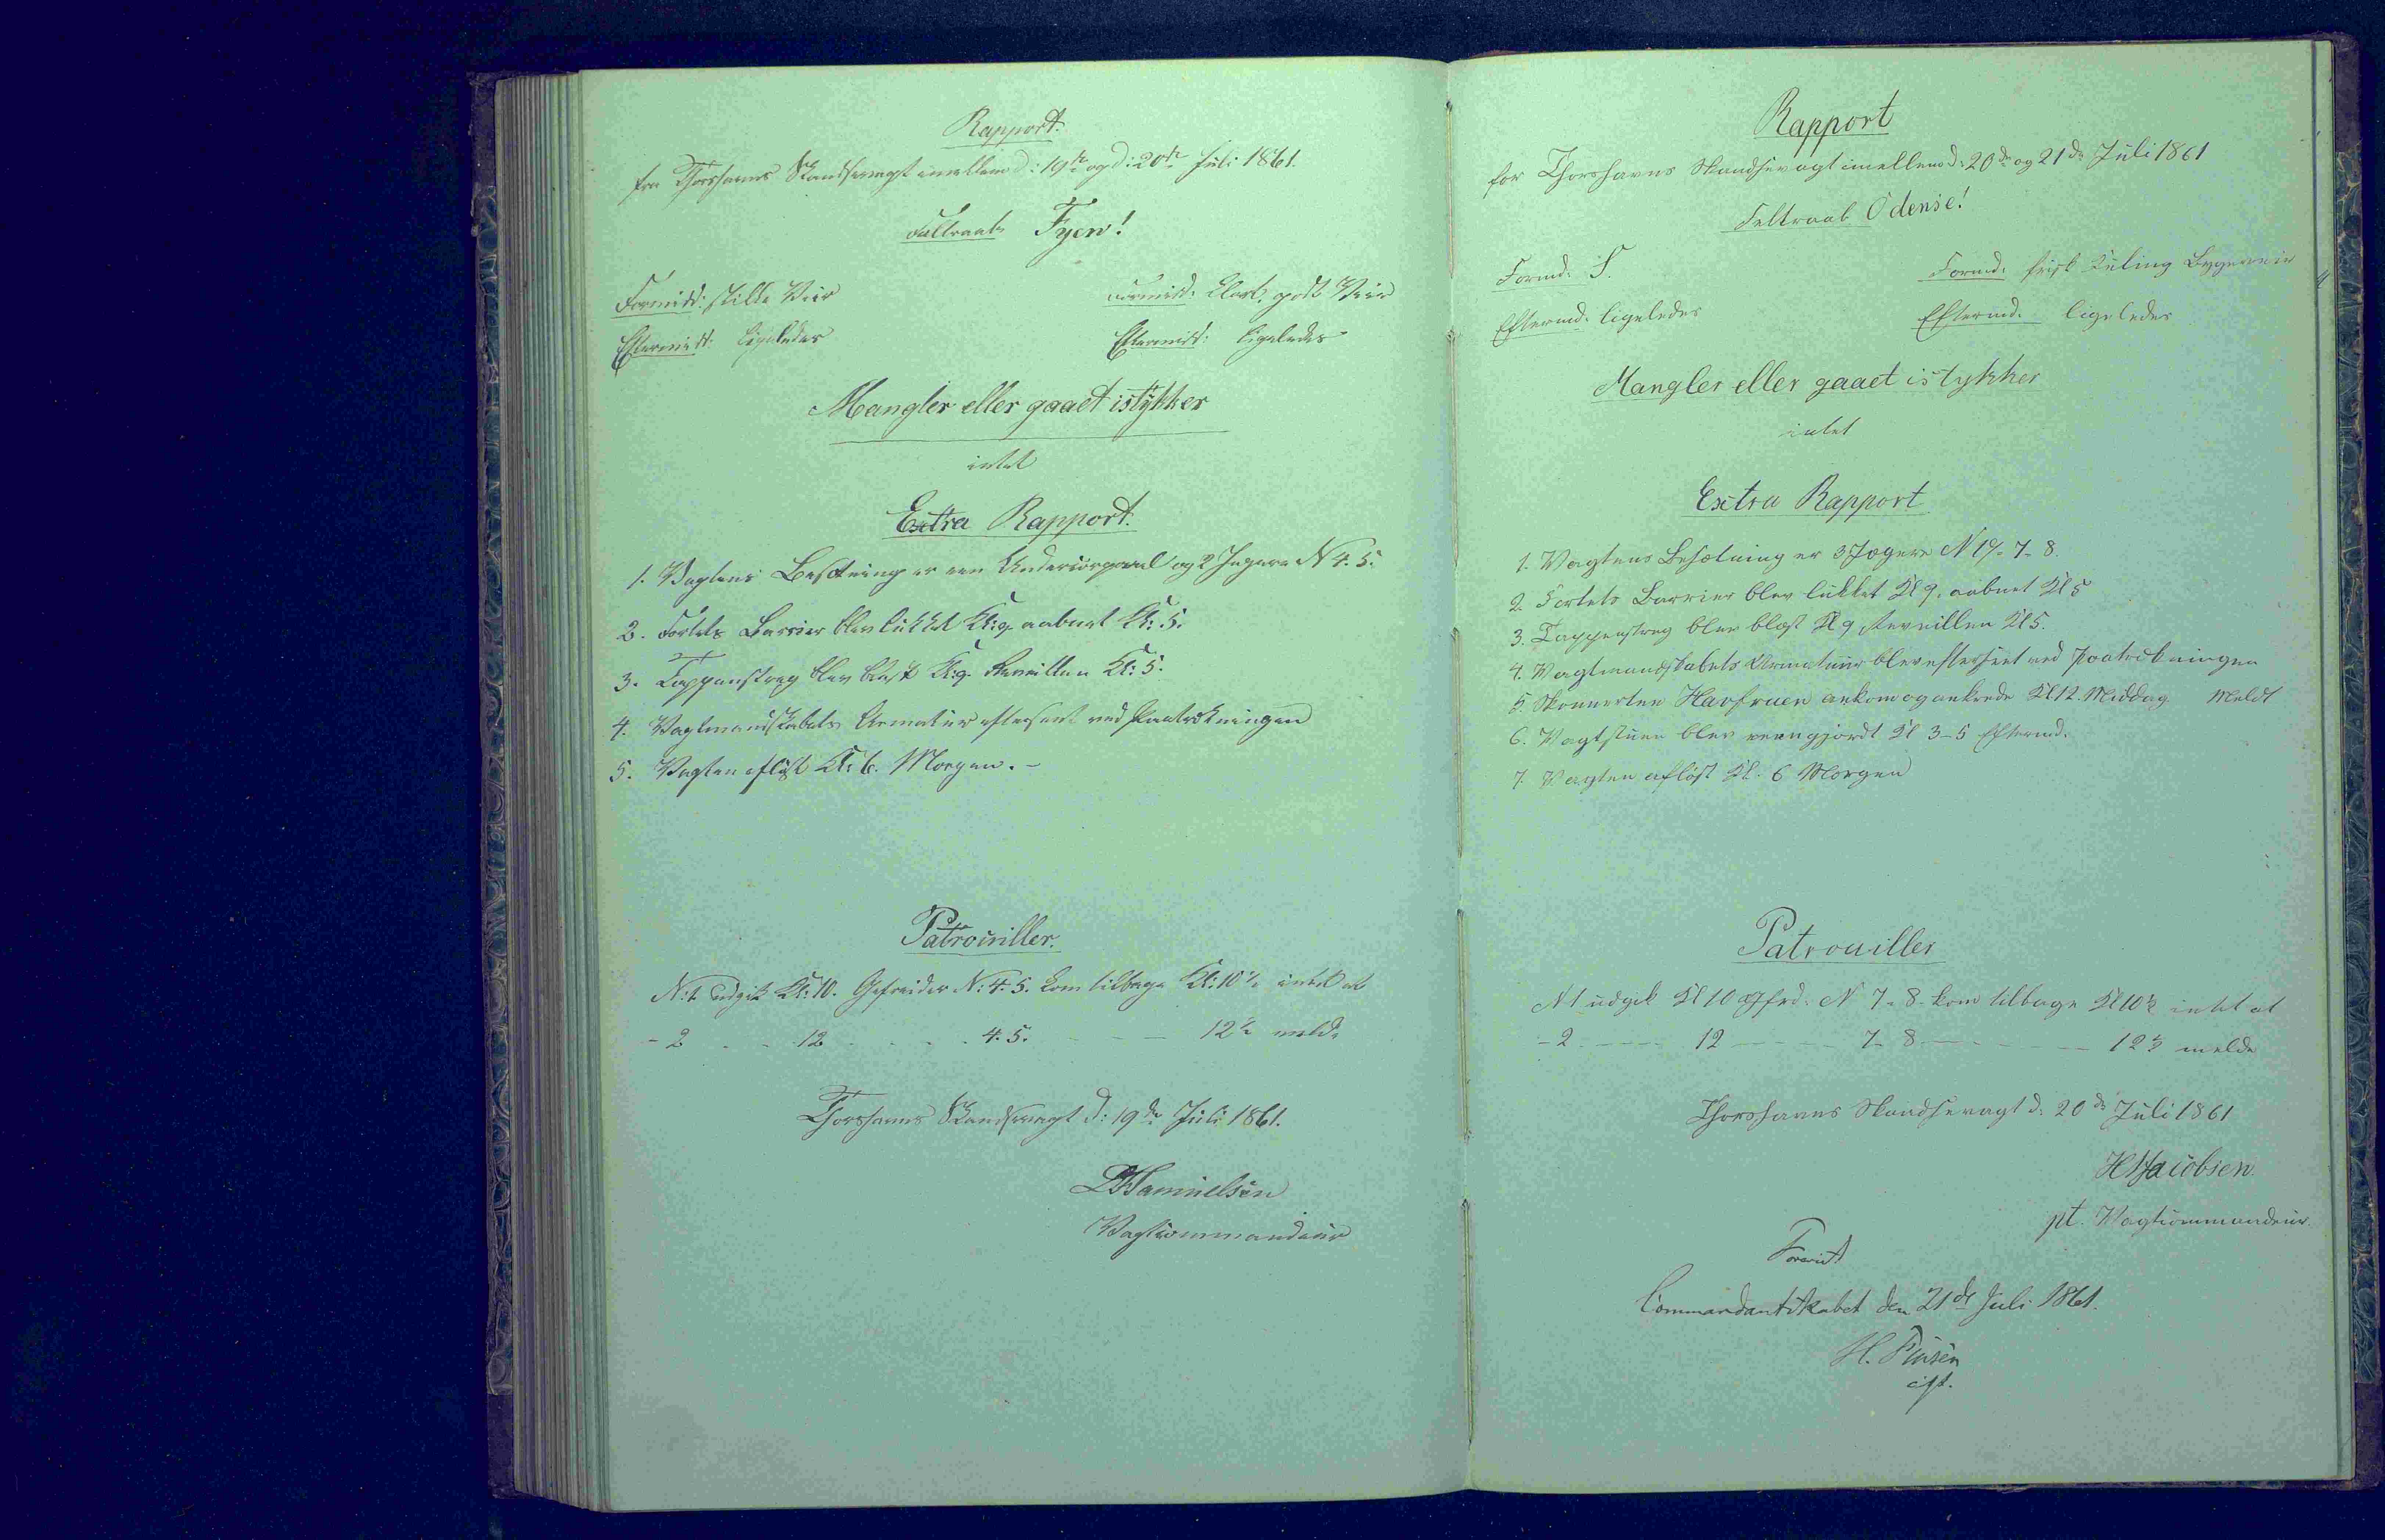 Rapport.
fra Thorshavns Skandsevagt imellem d: 19de og d: 20de Juli 1861.
Feltraab Fyen!
Formidd: stille Veir
Formidd: Klart, godt Veir
Eftermidd: ligeledes
Eftermidd: ligeledes
Mangler eller gaaet istykker
intet
Extra Rapport.
1. Vagtens Besætning er een Undercorporal og 2 Jægere N 4. 5.
2. Fortets Barrier blev lukket Kl: 9. aabnet Kl: 5.
3. Tappenstreg blev blæst Kl: 9. Reveillen Kl: 5.
4. Vagtmandskabets Armatur efterseet ved Paatrækningen
5. Vagten afløst Kl: 6. Morgen. -
Patrouiller.
N: 1 udgik Kl: 10. Gefreider N: 4. 5. kom tilbage Kl: 10½ intet at
- 2 - - 12 - - - 4. 5. - - - 12½ melde
Thorshavns Skandsevagt d: 19de Juli 1861.
Samuelsen
Vagtcommandeur
Rapport
for Thorshavns Skandsevagt imellem d: 20de og 21de Juli 1861
Feltraab Odense!
Formd: S.
Formd: frisk Kuling Bygeveir
Eftermd: ligeledes
Eftermd: ligeledes
Mangler eller gaaet istykker
intet
Extra Rapport
1. Vagtens Besætning er 3 Jægere N 19- 7- 8.
2. Fortets Barrier blev lukket Kl 9, aabnet Kl 5
3. Tappenstreg blev blæst Kl 9, Reveillen Kl 5.
4. Vagtmandskabets Armatuur blev efterseet ved Paatrækningen
5. Skonnerten Havfruen ankom og ankrede Kl 12. Middag Meldt
6. Vagtstuen blev reengjordt Kl 3-5 Eftermd.
7. Vagten afløst Kl. 6 Morgen
Patrouiller
N 1 udgik Kl 10 Gfrd: N 7- 8- kom tilbage Kl 10½ intet at
- 2 - - - - 12 - - - - 7- 8 - - - - 12½ melde
Thorshavns Skandsevagt d: 20de Juli 1861
Jacobsen
pt. Vagtcommandeur.
Forevist
Commandantskabet den 21de Juli 1861.
H. Finsen
cst.